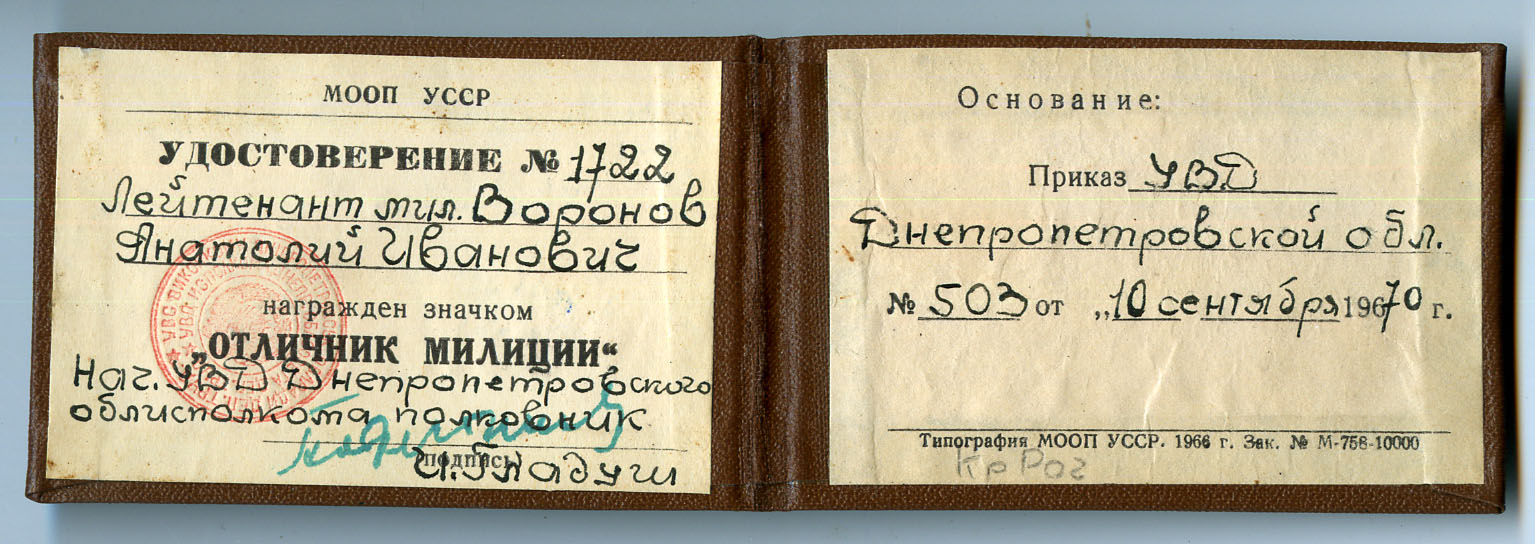 МООП УССР
УДОСТОВЕРЕНИЕ № 1722
Лейтенант мил. Воронов
Анатолий Иванович
награжден значком
„ОТЛИЧНИК МИЛИЦИИ“
Нач. УВД Днепропетровского
облисполкома полковник
(подпись)
И. Гладуш
Основание:
Приказ УВД
Днепропетровской обл.
№ 503 от „10 сентября 1970 г.
Типография МООП УССР. 1966 г. Зак. № М-758-10000
Кр Рог